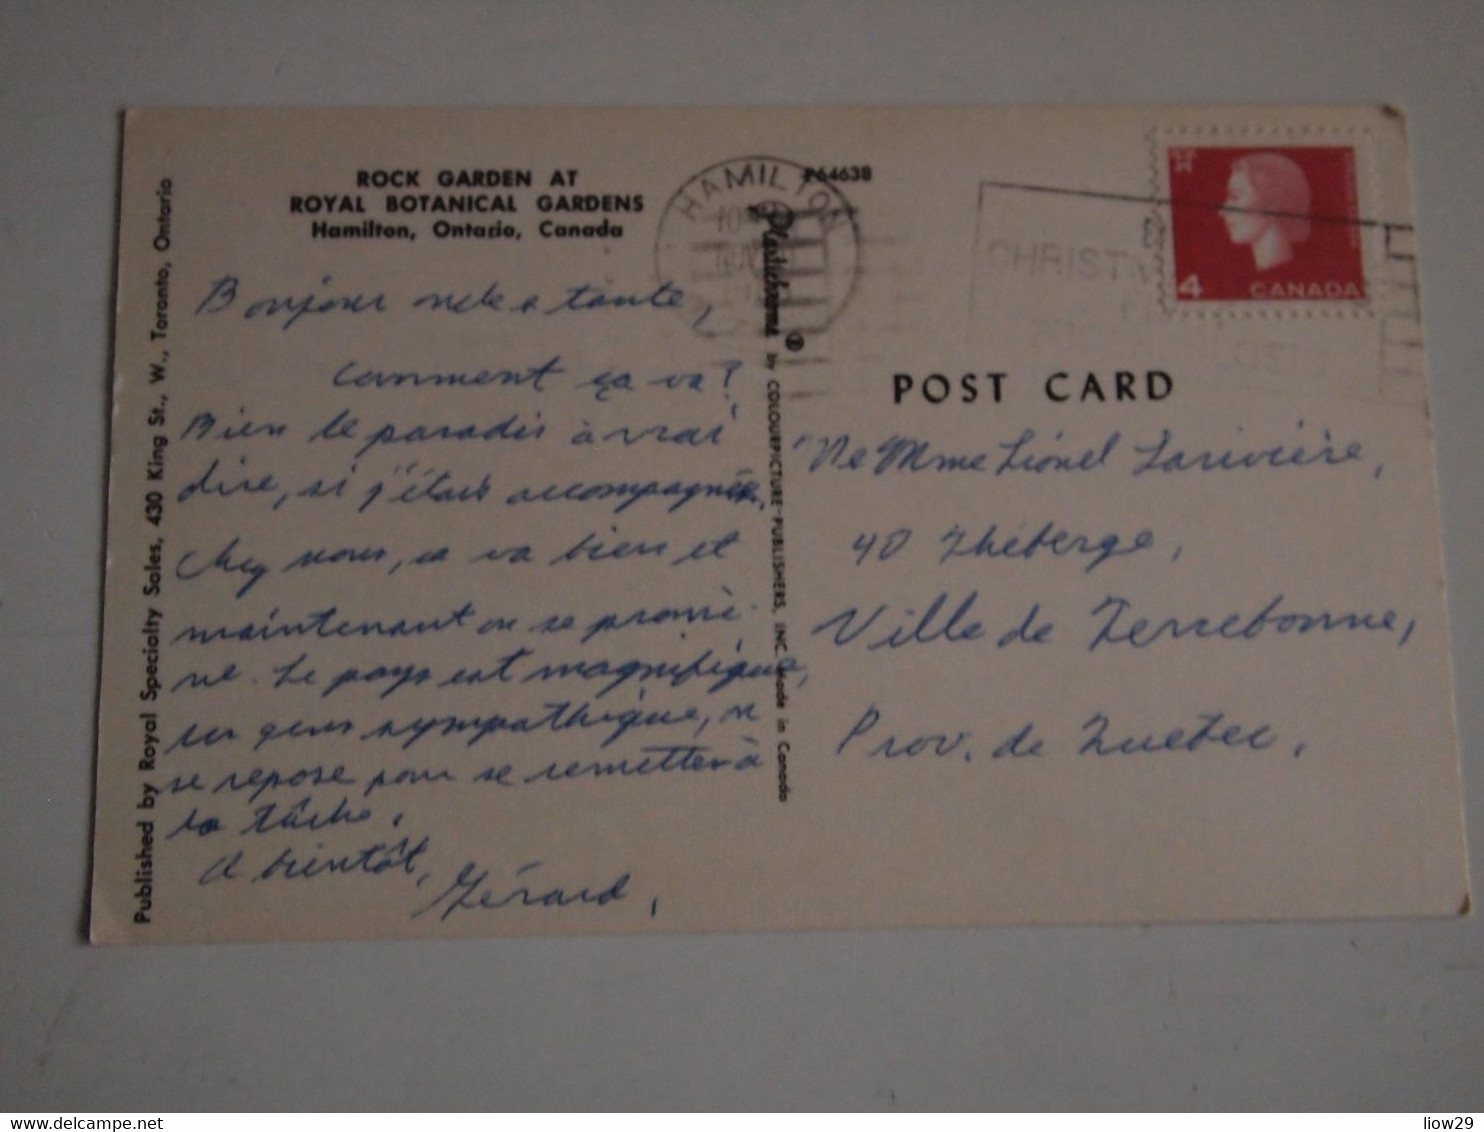 ROCK GARDEN AT
ROYAL BOTANICAL GARDENS
Hamilton, Ontario, Canada
Bonjour tante,
comment ça va?
Bien le paradis à vrai
dire, si j'étais accompagnée.
Chez nous, ça va bien et
maintenant on se promè-
ne. Le pays est magnifique,
les gens sympathique, on
se repose pour se remettre à
la tâche.
A bientôt,
Gérard,
Published by Royal Specialty Sales, 430 King St., W., Toronto, Ontario
P64638
Plastichrome ® by COLOURPICTURE-PUBLISHERS, INC. Made in Canada
HAMILTON
CHRIST
4 CANADA
POST CARD
Mme Lionel Larivière,
40 Théberge,
Ville de Terrebonne,
Prov. de Quebec,
delcampe.net
liow29